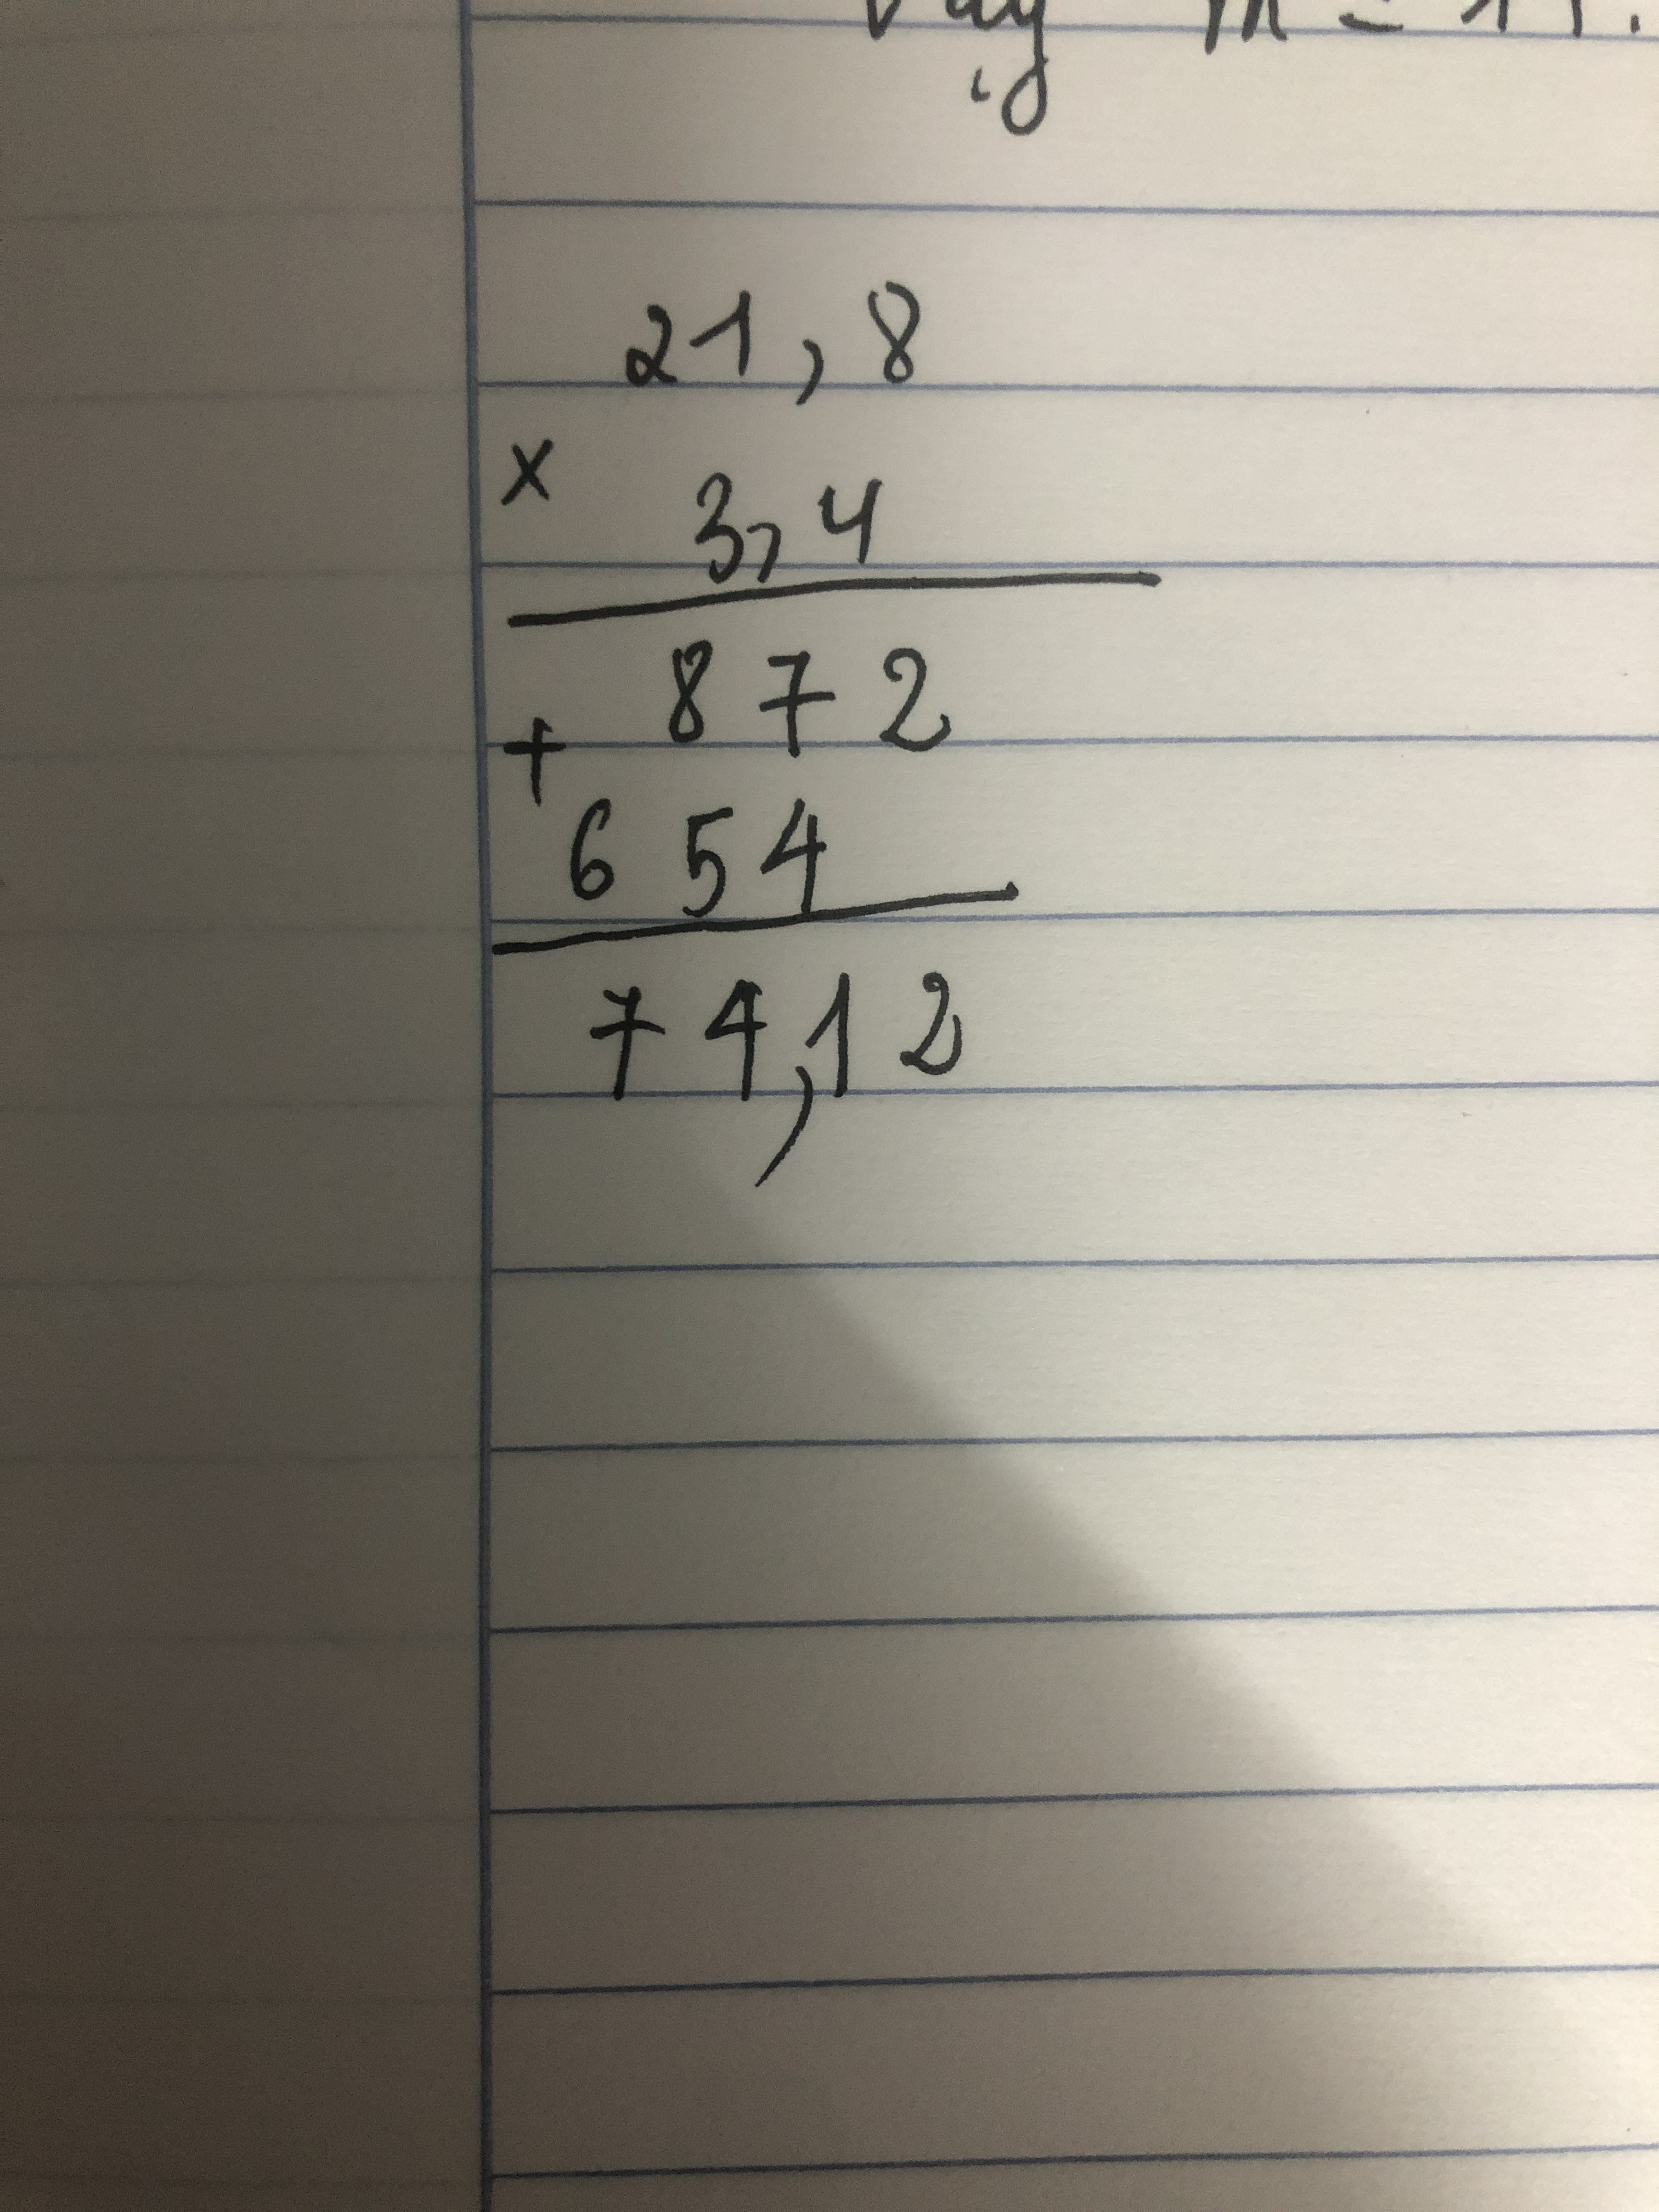 Vậy m = 11.
21,8
x
3,4
872
+
654
74,12